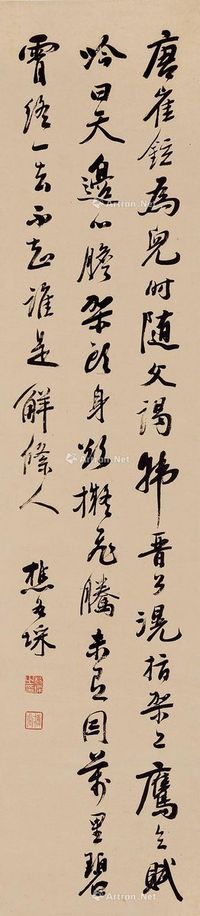 唐崔鉉為兒時随父謁韩晋公滉指架上鷹令賦
吟曰天邊心膽架頭身欲擬飛騰未有因萬里碧
霄終一去不知誰是觧絛人
Artron.Net
Artron.Net
Artron.Net